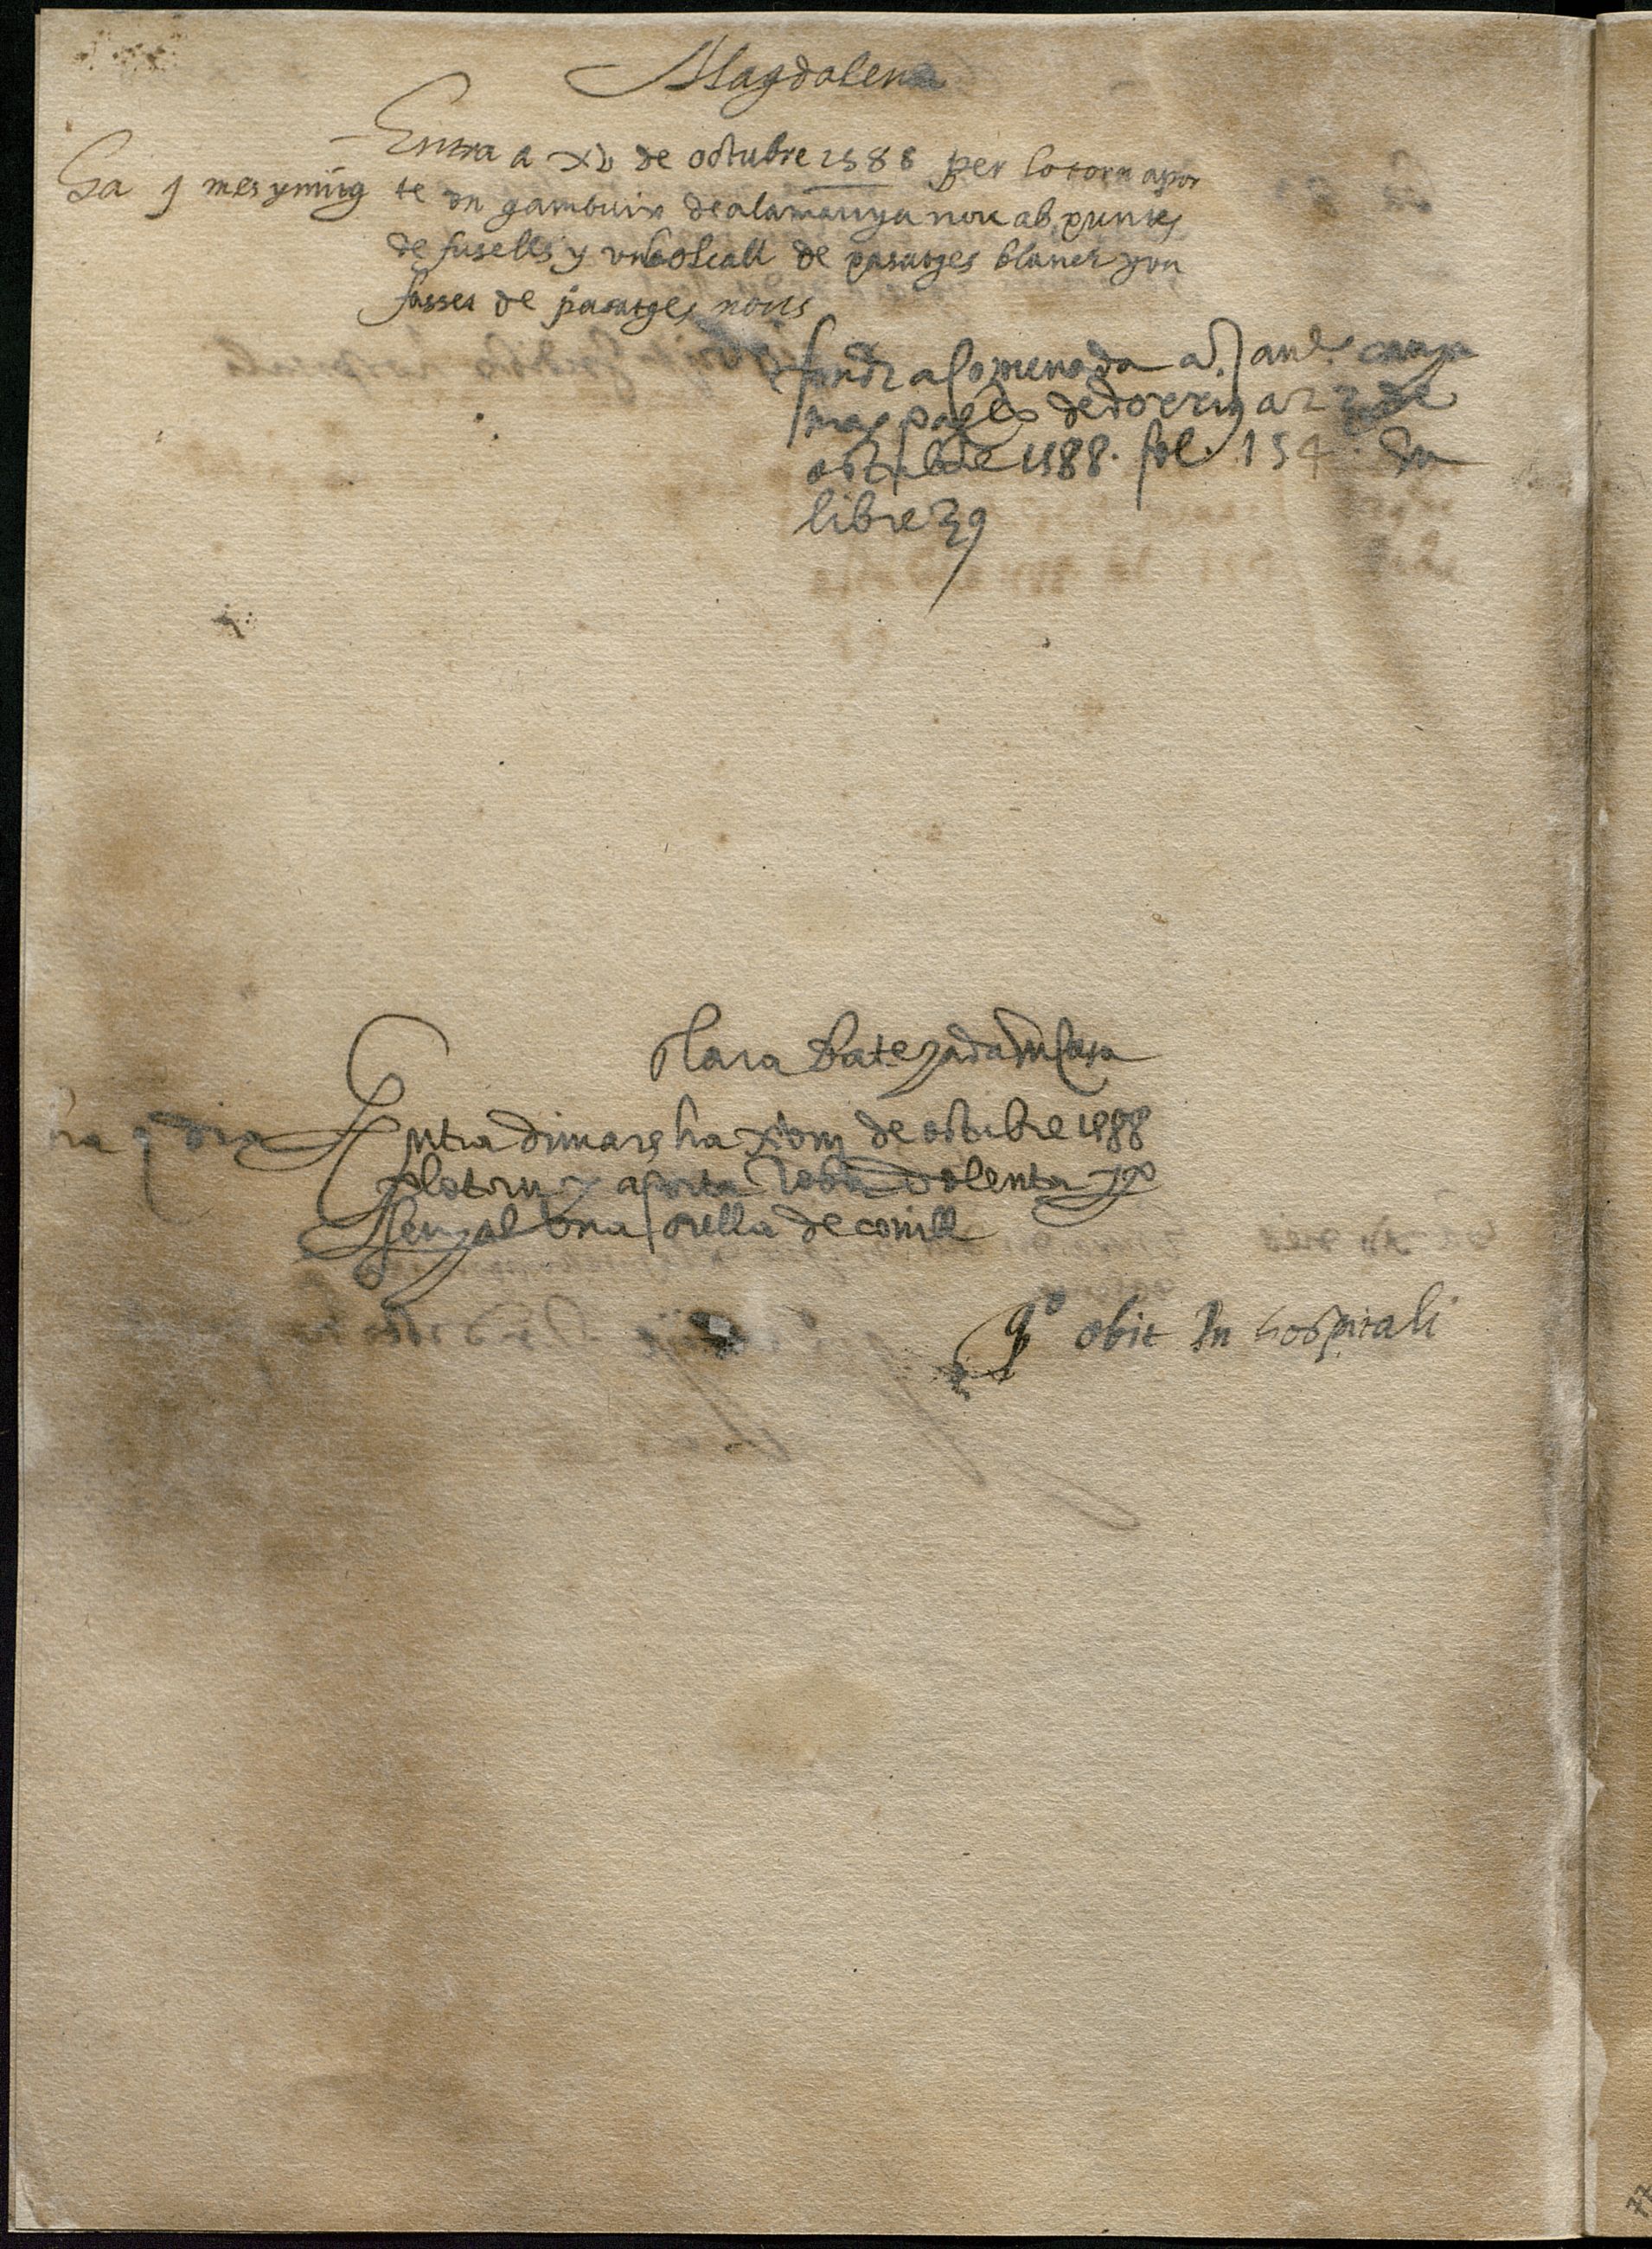 Magdalena
Entra a xv de octubre 1588 per lo torn apor
Ha j mes y mitg
te un gambuix de alamanya nou ab puntes
de fusells y un bolcall de pasatges blanch y un
fasses de pasatges nous
fonch acomenada a Jaul
pages de a 22 de
octubre 1588. fol. 154 du
libre 39
Clara batejada en casa
ha j dia
Entra dimars ha xviij de octubre 1588
p lo torn y aporta roba dolenta y p
senyal una orella de conill
obit In hospitali